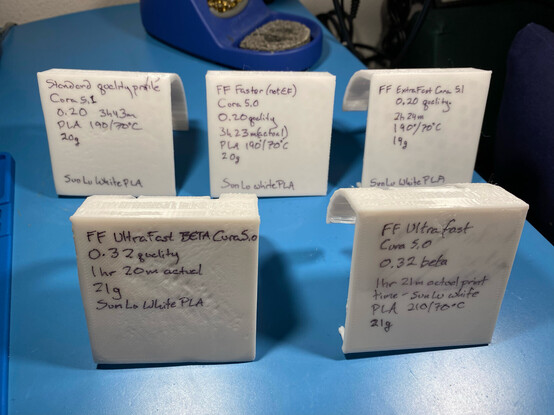 Standard quality profile
Cura 5.1
0.20 3h43m
PLA 190/70°C
20g
SunLu White PLA
FF Faster (not EF)
Cura 5.0
0.20 quality
3h 23m (actual)
PLA 190/70°C
20g
SunLu White PLA
FF ExtraFast Cura 5.1
0.20 quality
2h 24m
190°/70°C
19g
SunLu White PLA
FF UltraFast BETA Cura 5.0
0.32 quality
1hr 20m actual
21g
SunLu White PLA
FF Ultrafast
Cura 5.0
0.32 beta
1hr 21m actual print
time - SunLu white
PLA 210/70°C
21g